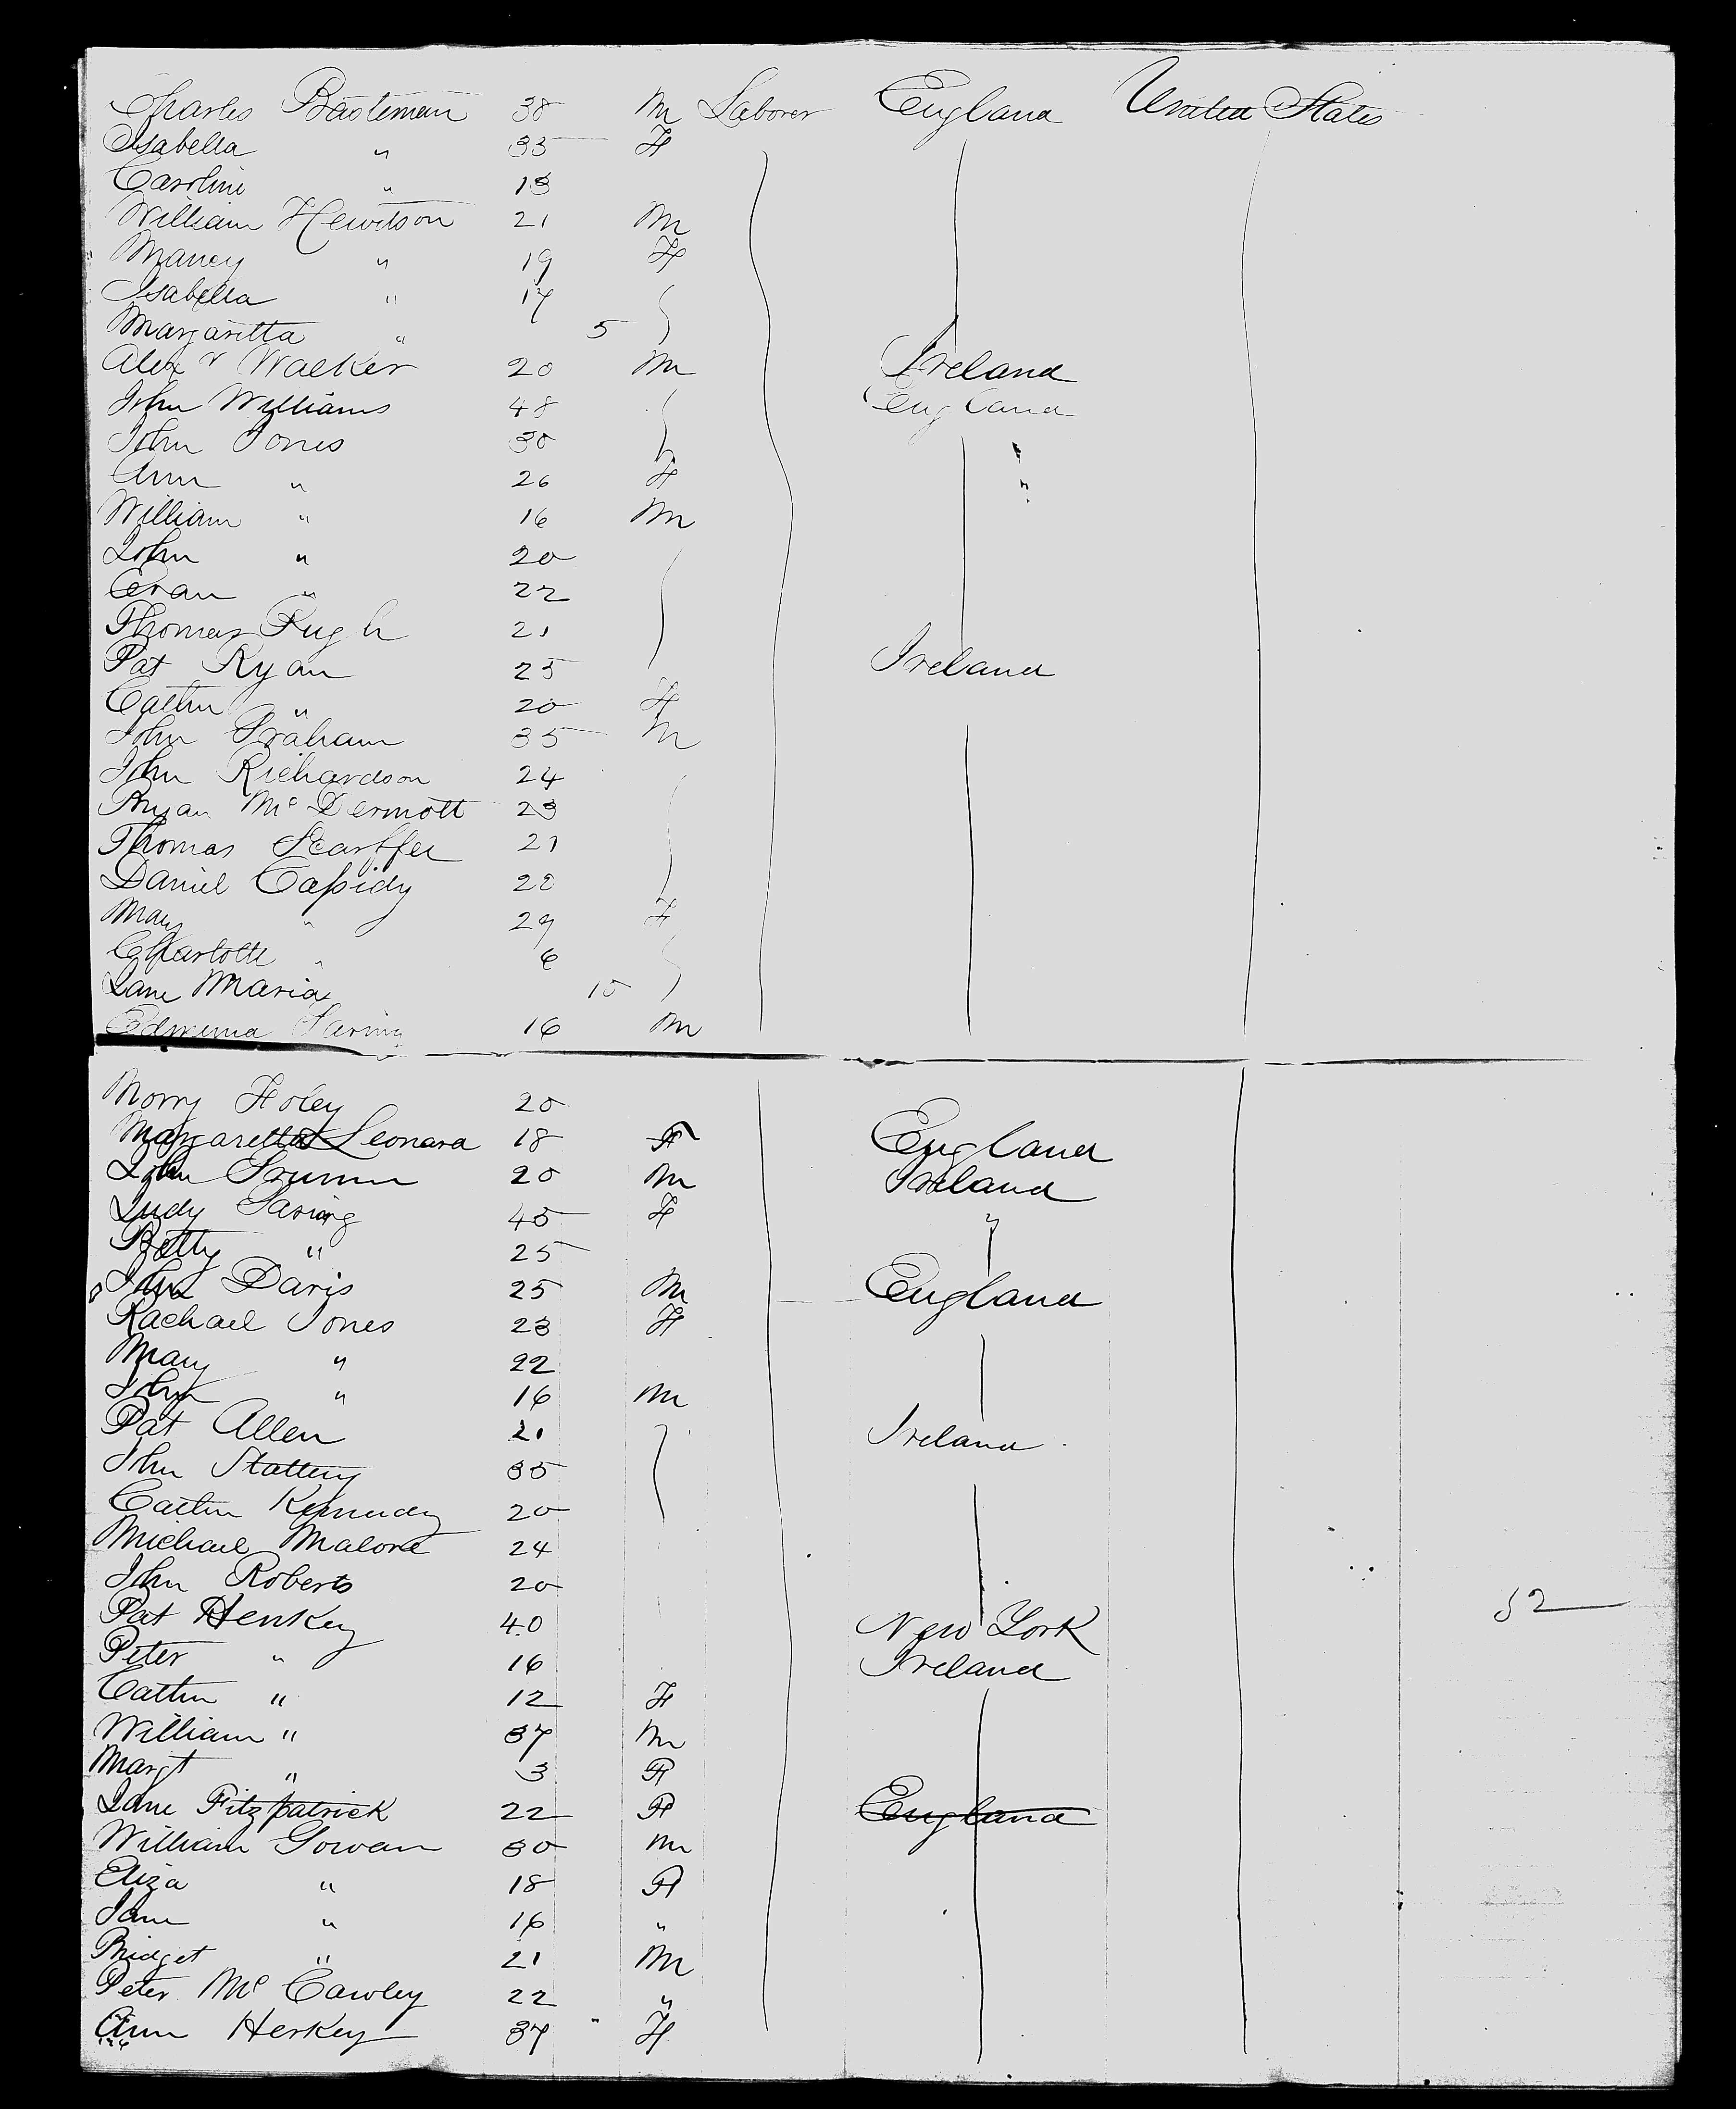 Charles Bateman 38 M Laborer England United States
Isabella " 35 F
Caroline " 13
William Hewitson 21 M
Nancy " 19 F
Isabella " 17
Margaretta " 5
Alexr Walker 20 M Ireland
John Williams 48 England
John Jones 30
Ann " 26 F
William " 16 M
John " 20
Evan " 22
Thomas Pugh 21
Pat Ryan 25 Ireland
Cathn " 20 F
John Graham 35 M
John Richardson 24
Bryan McDermott 23
Thomas 21
Daniel Cassidy 28
Mary " 29 F
Charlotte " 6
Jane Maria 10
16 M
Morry Foley 20
Margaretta Leonard 18 F England
John 20 M Ireland
Judy 45 F "
Betty " 25
John Davis 25 M England
Rachael Jones 23 F
Mary " 22
John " 16 M
Pat Allen 21 Ireland
John Slattery 35
Cathn Kennedy 20
Michael Malone 24
John Roberts 20
Pat Henkey 40 New York 52
Peter " 16 Ireland
Cathn " 12 F
William " 37 M
Margt " 3 F
Jane Fitzpatrick 22 F England
William Gowan 30 M
Eliza " 18 F
Jane " 16 "
Bridget " 21 M
Peter McCawley 22 "
Ann Herkey 37 " F